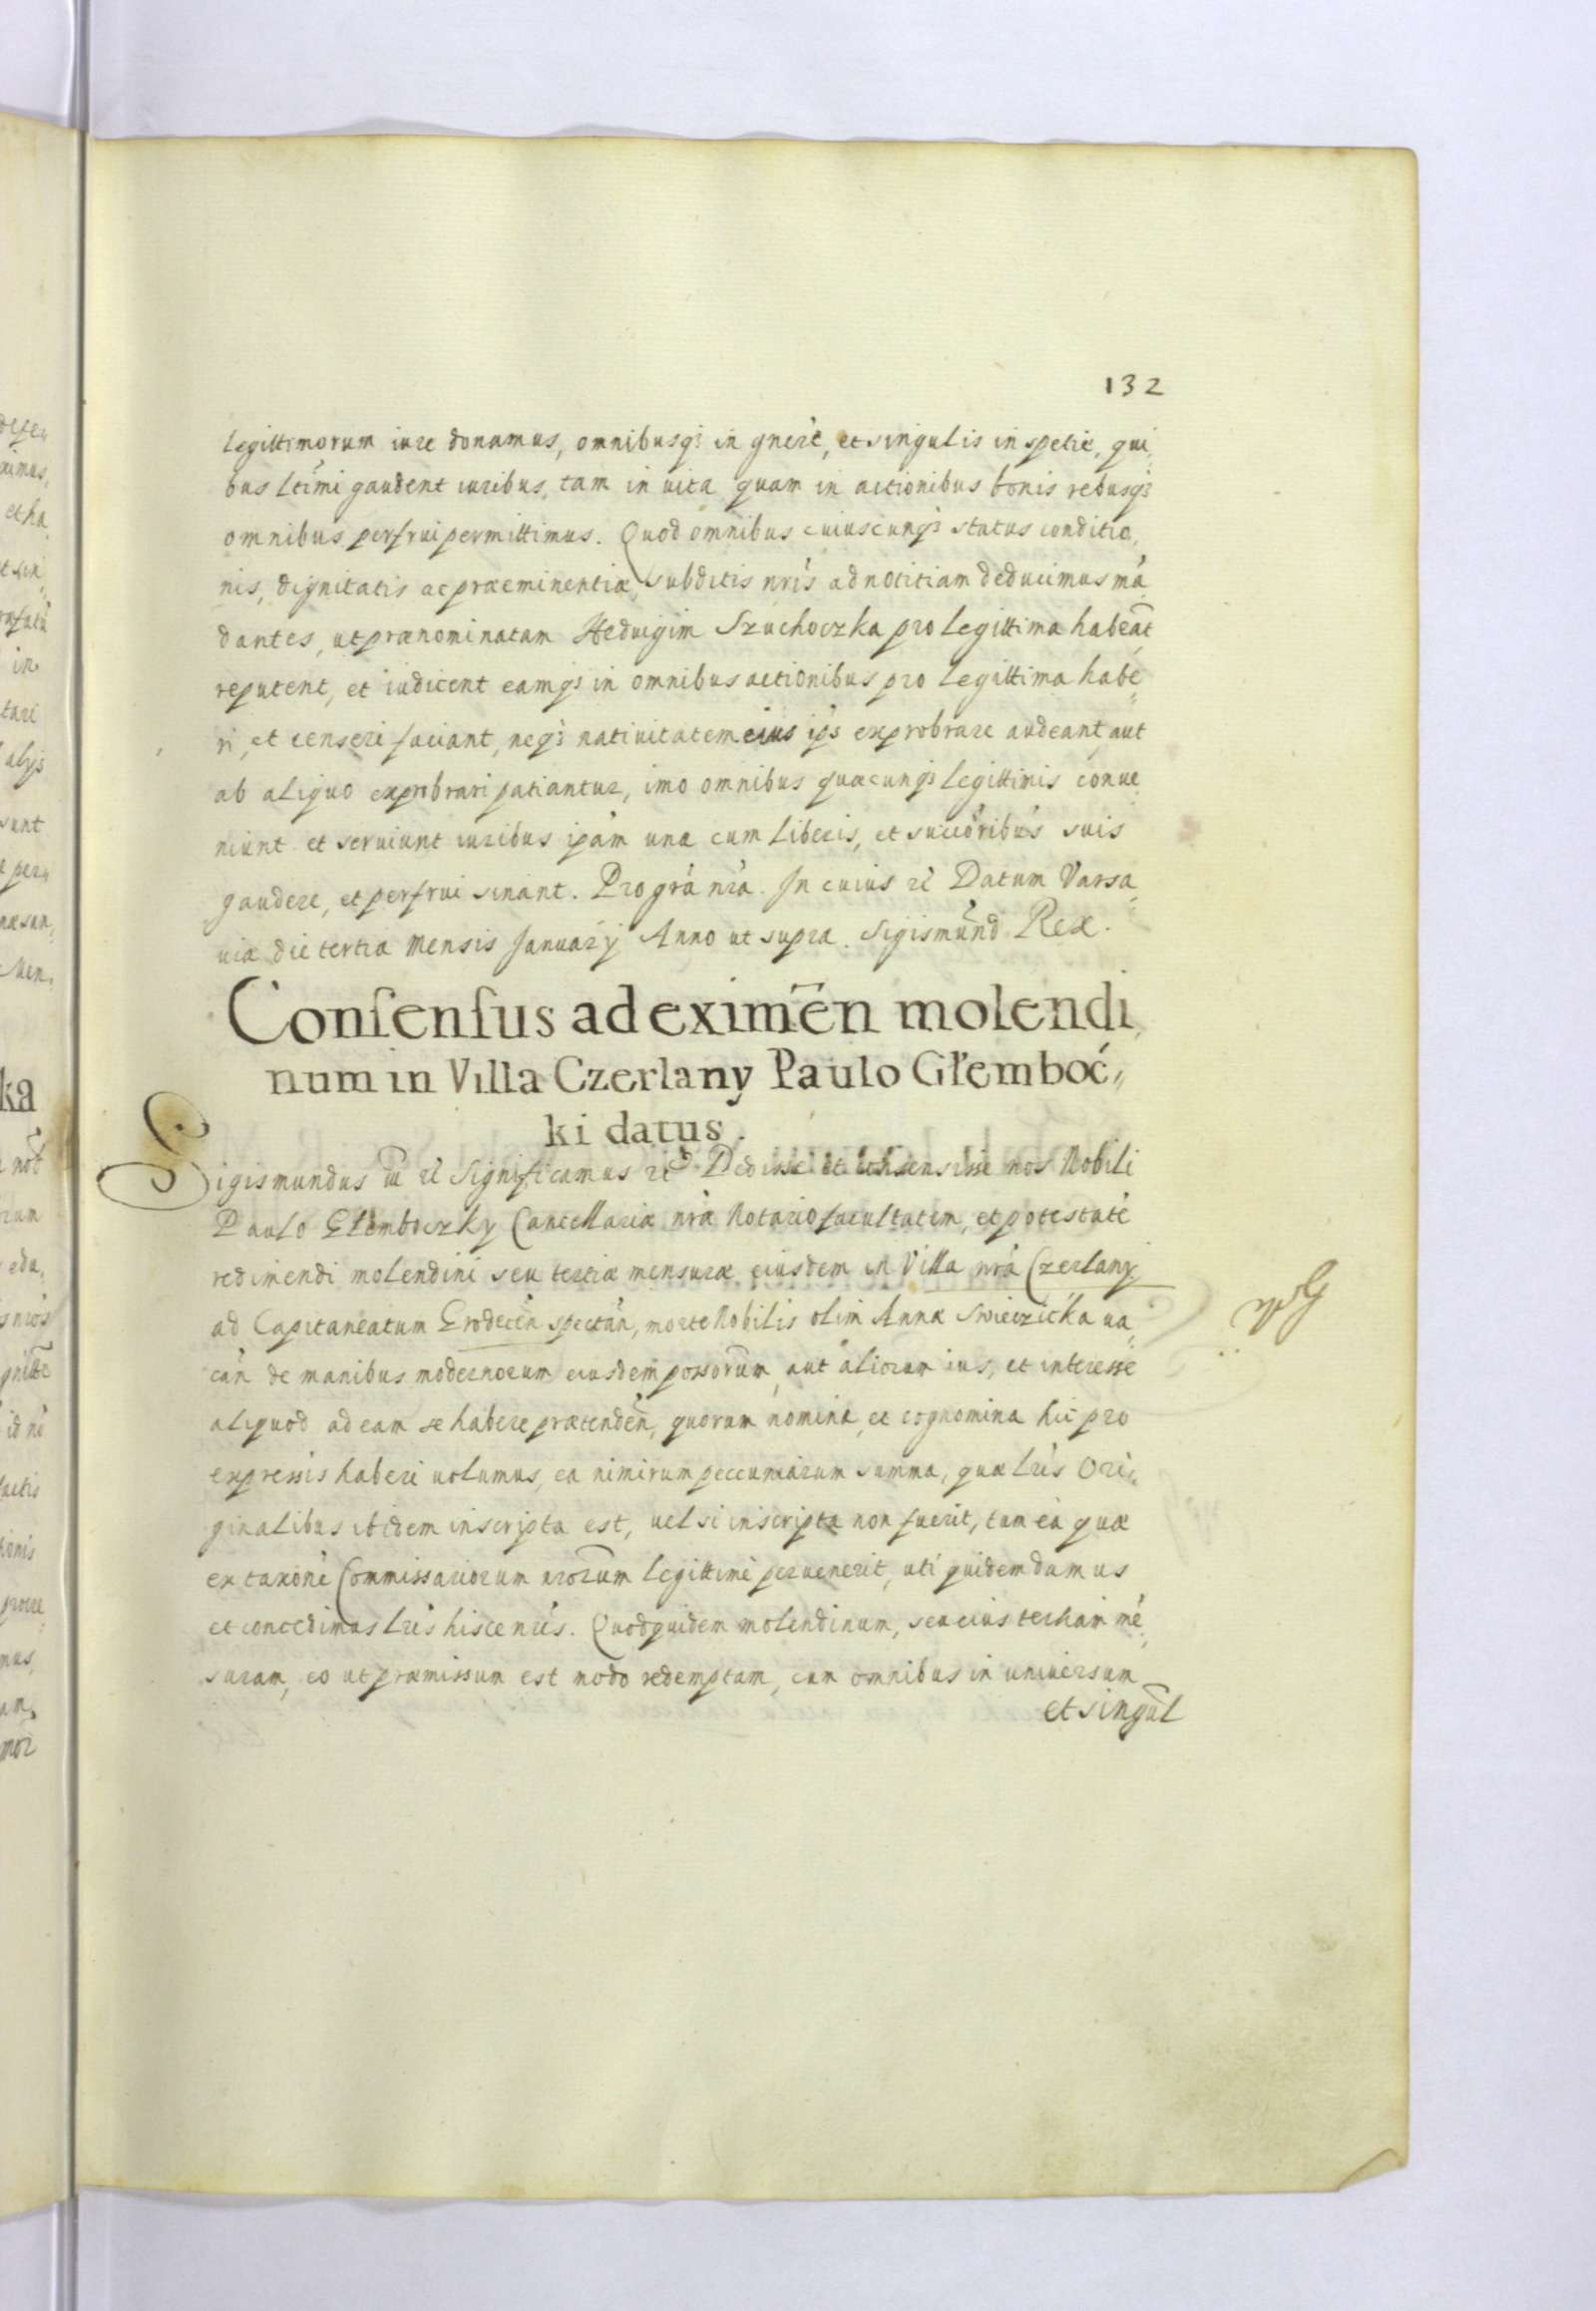 132
legittimorum iure donamus, omnibusq; in gnere, et singulis in spetie, qui,
bus ltimi gaudent iuribus, tam in uita quam in actionibus bonis rebusq;
omnibus perfrui permittimus. Quod omnibus cuiuscunq; status conditio,
nis, dignitatis ac præeminentiæ subditis nris ad notitiam deducimus mā
dantes, ut prænominatam Heduigim Szuchoczka pro legittima habeāt
reputent, et iudicent eamq; in omnibus actionibus pro legittima habe„
ri, et censeri faciant, neq; natiuitatem eius ips exprobrare audeant, aut
ab aliquo exprobrari patiantur, imo omnibus quæcunq; legittimis conue„
niunt et seruiunt iuribus ipam una cum liberis, et succoribus suis
gaudere, et perfrui sinant. Pro gra nra. In cuius rei Datum Varsa„
uiæ die tertia mensis January Anno ut supra. Sigismund Rex.
Consensus ad eximēn molendi,
num in Villa Czerlany Paulo Głemboć„
ki datus.
Sigismundus III rē Significamus rē Dedisse et consensisse nos Nobili
Paulo Głemboczky Cancellariæ nræ Notario facultatem, et potestatē
redimendi molendini seu tertiæ mensuræ eiusdem in Villa nra Czerlany
ad Capitaneatum Grodecen spectan, morte Nobilis olim Annæ Swieczicka ua„
can de manibus modernorum eiusdem possorum, aut aliorum ius, et interesse
aliquod ad eam se habere prætenden, quorum nomina, et cognomina hic pro
expressis haberi uolumus, ea nimirum peccuniarum summa, quæ lris Ori„
ginalibus ibidem inscripta est, uel si inscripta non fuerit, tum ea quæ
ex taxone Commissariorum nrorum legittime peruenerit, uti quidem damus
et concedimus lris hisce nris. Quodquidem molendinum, seu eius tertiam mē„
suram, eo ut præmissum est modo redemptam, cum omnibus in uniuersum
et singul